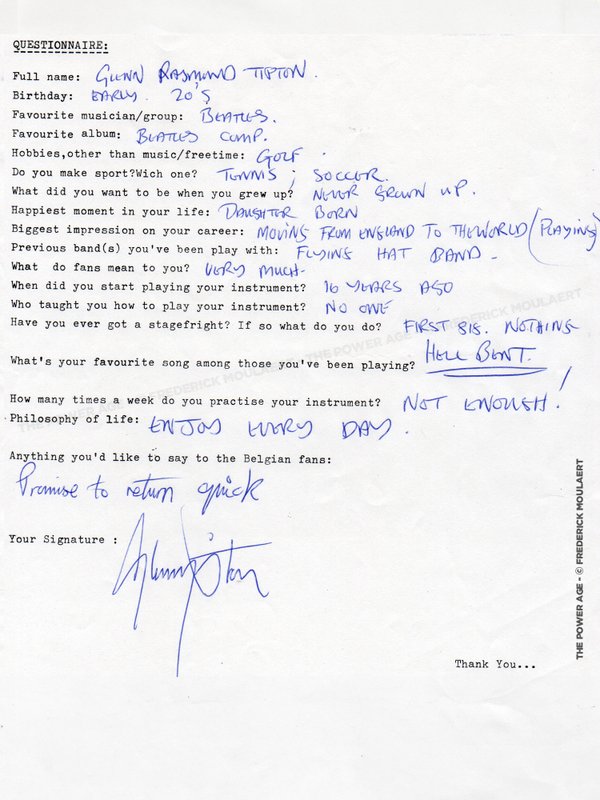 QUESTIONNAIRE:
Full name: GLENN RAYMOND TIPTON.
Birthday: EARLY. 20'S
Favourite musician/group: BEATLES.
Favourite album: BEATLES COMP.
Hobbies,other than music/freetime: GOLF
Do you make sport?Wich one? TENNIS ; SOCCER.
What did you want to be when you grew up? NEVER GROWN UP.
Happiest moment in your life: DAUGHTER BORN
Biggest impression on your career: MOVING FROM ENGLAND TO THE WORLD (PLAYING)
Previous band(s) you've been play with: FLYING HAT BAND -
What do fans mean to you? VERY MUCH-
When did you start playing your instrument? 16 YEARS AGO
Who taught you how to play your instrument? NO ONE
Have you ever got a stagefright? If so what do you do? FIRST GIG. NOTHING
What's your favourite song among those you've been playing? HELL BENT.
How many times a week do you practise your instrument? NOT ENOUGH!
Philosophy of life: ENJOY EVERY DAY.
Anything you'd like to say to the Belgian fans:
Promise to return quick
Your Signature : Glenn Tipton
Thank You...
THE POWER AGE - © FREDERICK MOULAERT
THE POWER AGE - © FREDERICK MOULAERT